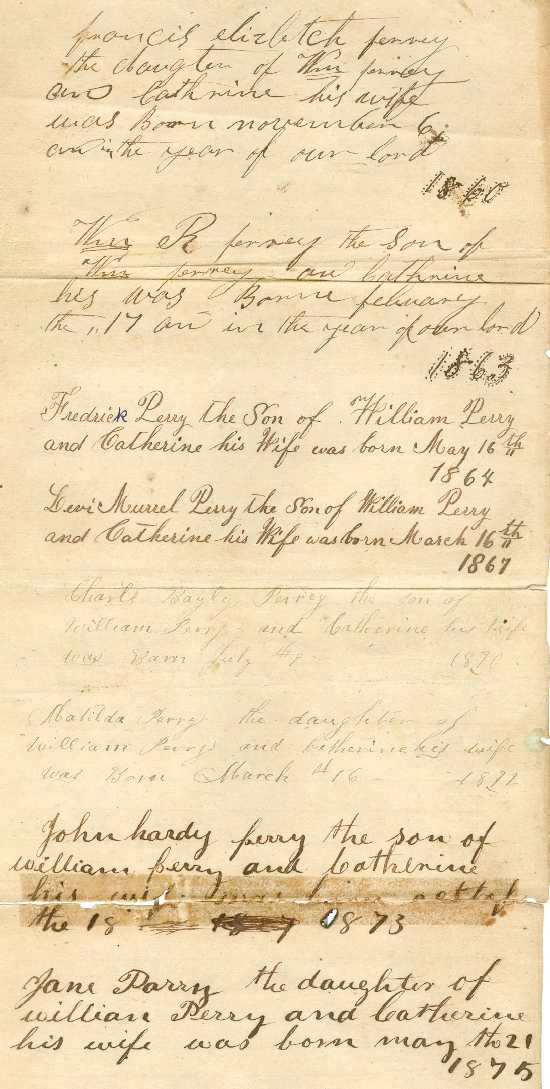 francis elizbteh perrey
the daugten of Wm perrey
and Cathrine his wife
was Born november 6
an in the year of our lord
1860
Wm R perrey the son of
Wm perrey an Cathrine
his was Borne febuary
the 17 an in the year of our lord
1863
Fredrick Perry the Son of William Perry
and Catherine his Wife was born May 16th
1864
Levi Murrel Perry the Son of William Perry
and Catherine his Wife was born March 16th
1867
Charls Bayly Perrey the son of
William Perry and Catherine his wife
was Barn July
Matilda Perry the daughter of
William Perry and Catherine his wife
was Born March 16
John hardy perry the son of
william perry and Catherine
his wife was
the 18 1873
Jane Parry the daughter of
william Perry and Catherine
his wife was born may th 21
1875